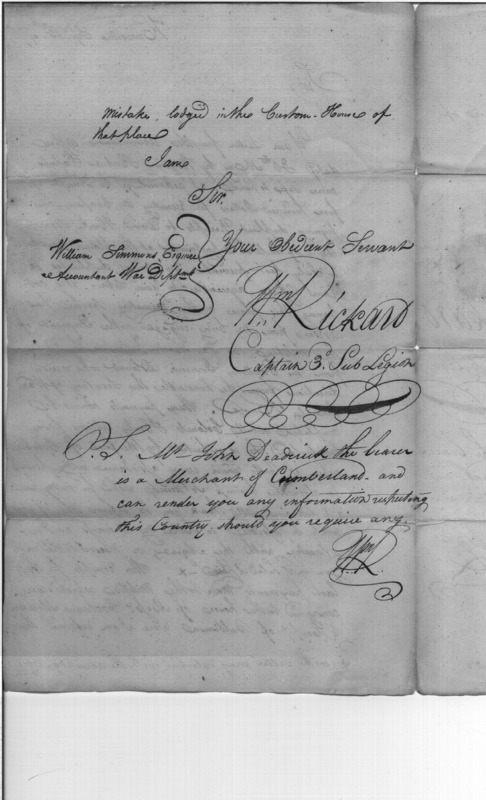 mistake, lodged in the Custom-House of
that place
I am
Sir.
Your Obedient Servant
William Simmons Esquire
Accountant War Deptmt
Wm Rickard
Captain 3d Sub Legion
P.S. Mr. John Deaderick the bearer
is a Merchant of Cumberland- and
can render you any information respecting
this Country should you require any.
WmR.